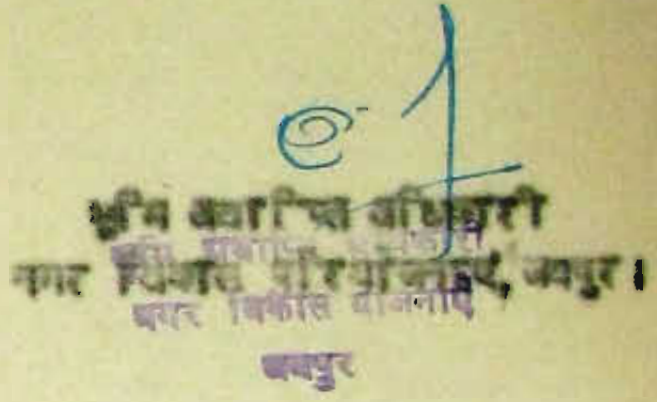 भूमि अवाप्ति अधिकारी
नगर विकास परियोजनाएं, जयपुर।
भूमि अवाप्ति अधिकारी
नगर विकास योजनाएं
जयपुर